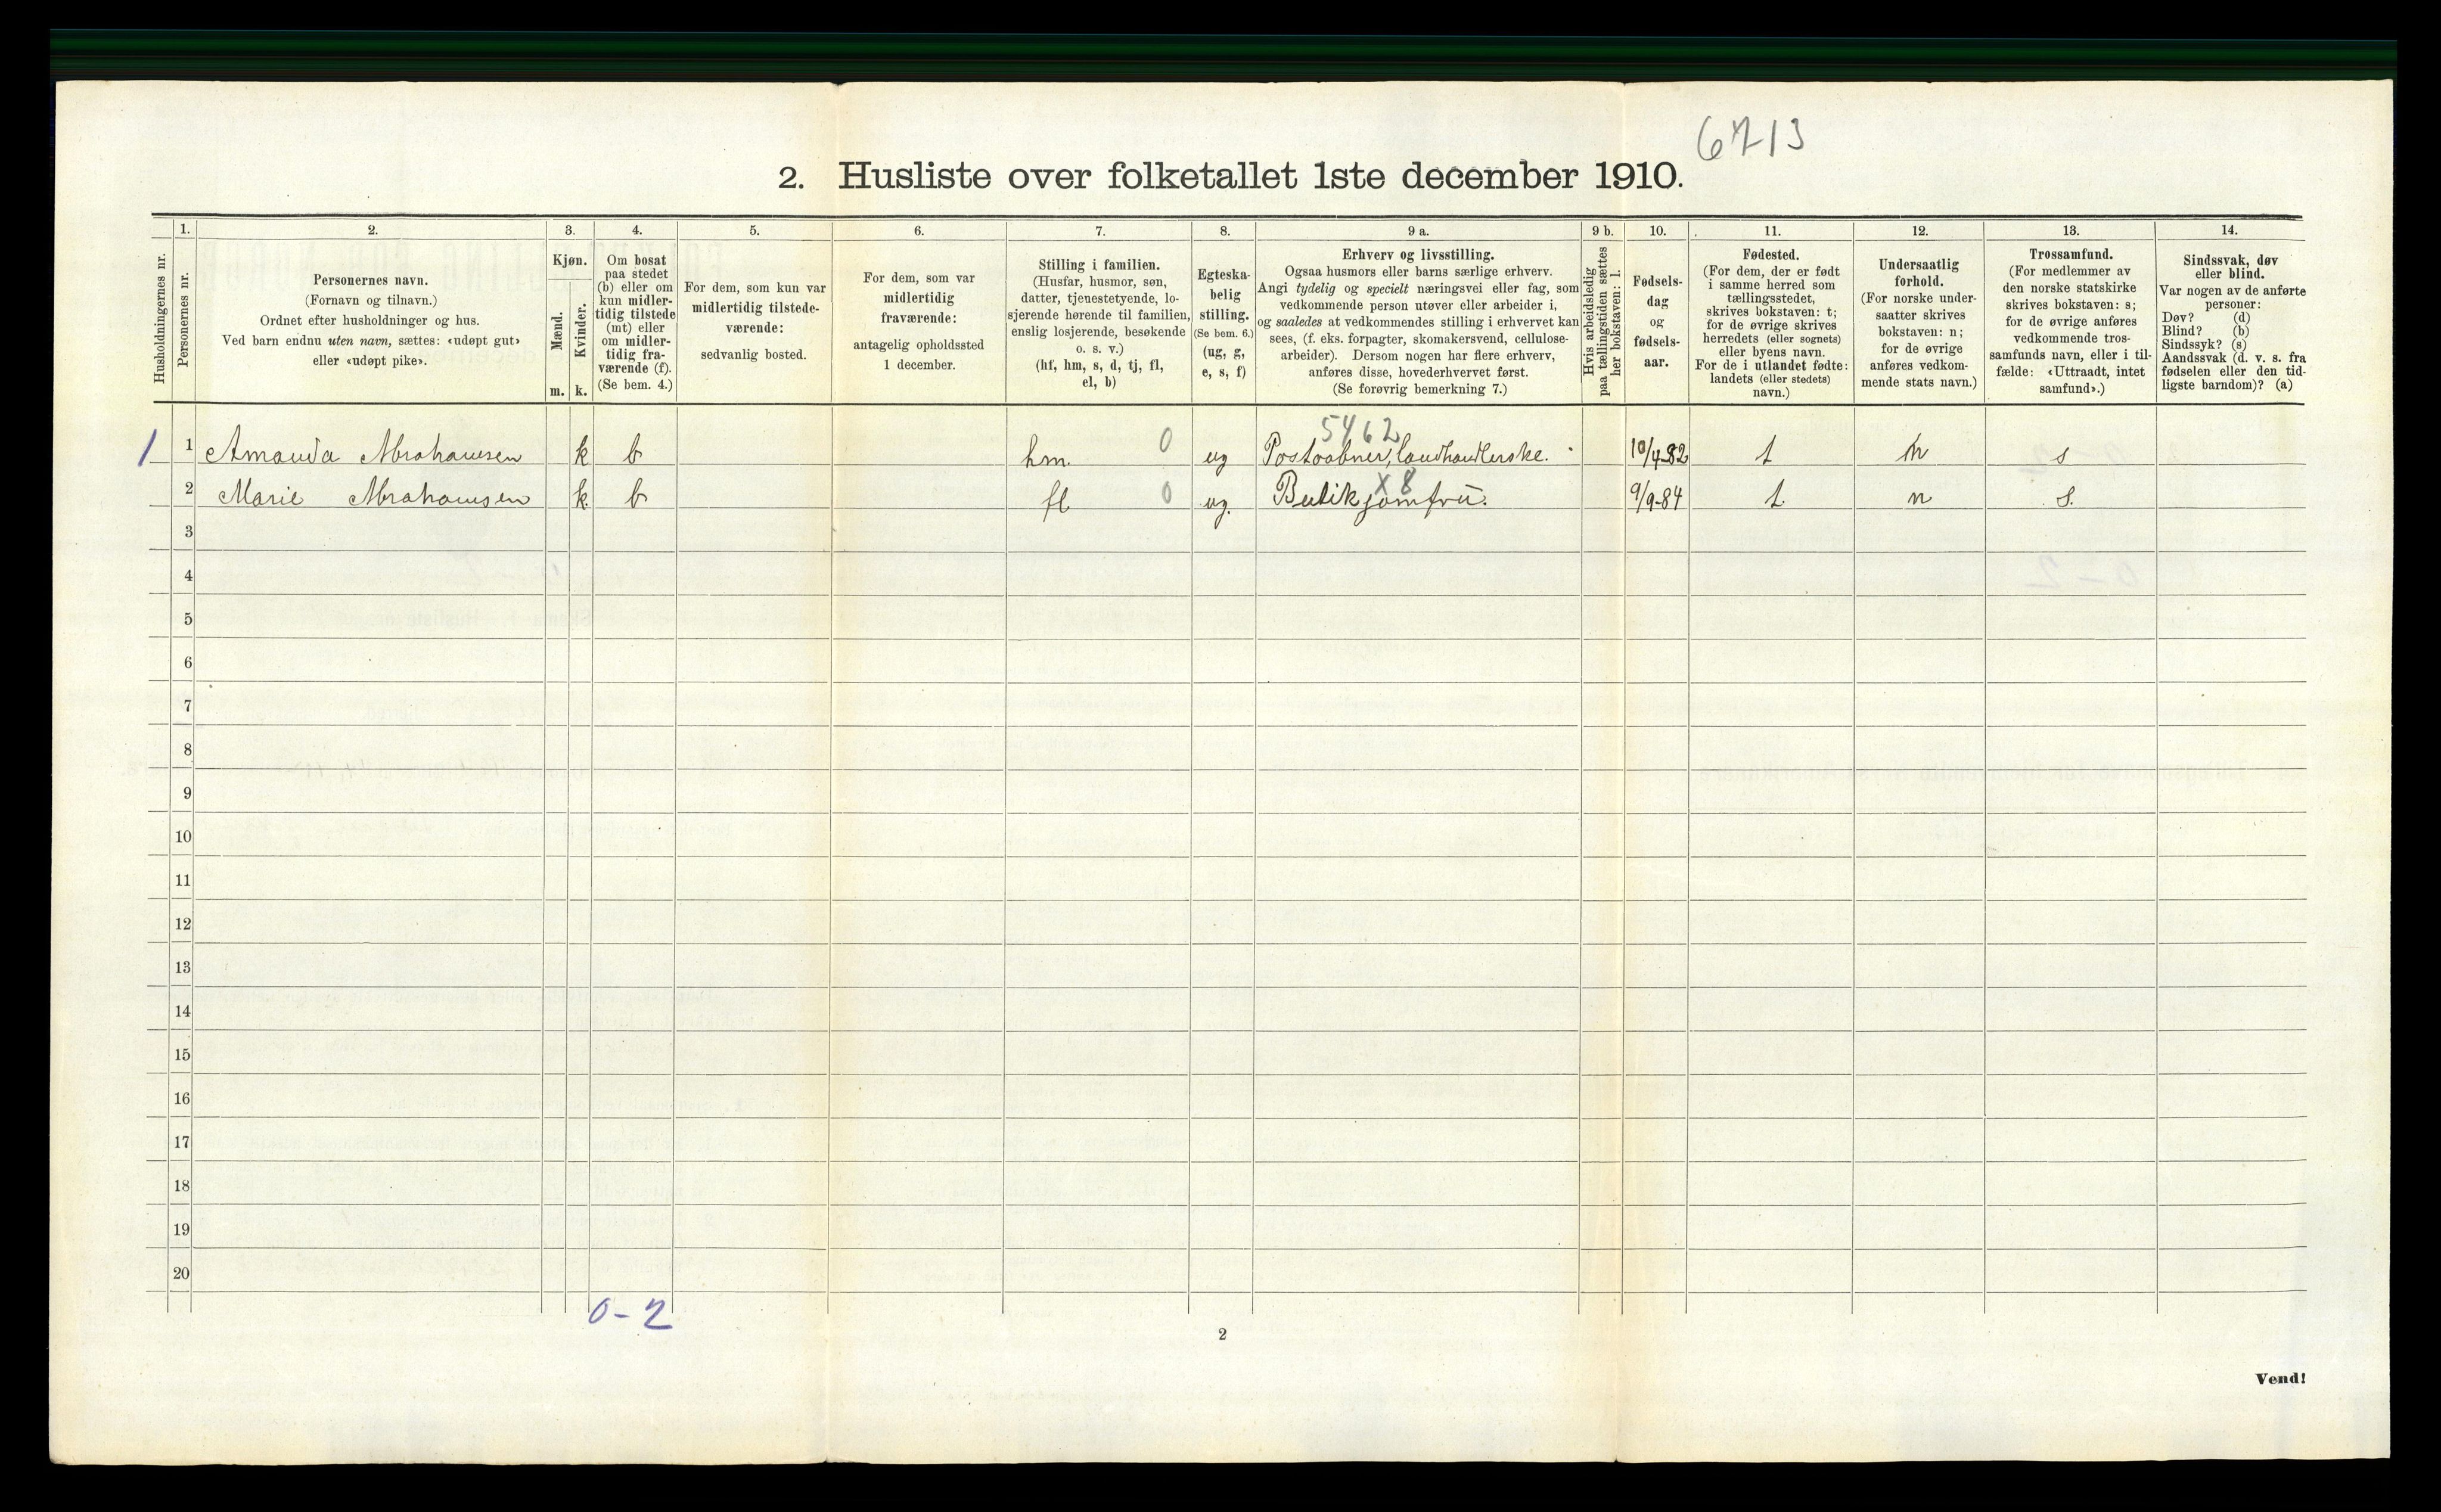 6713
2. Husliste over folketallet 1ste december 1910.
Husholdningernes nr.
1.
Personernes nr.
2.
Personernes navn.
(Fornavn og tilnavn.)
Ordnet efter husholdninger og hus.
Ved barn endnu uten navn, sættes: «udøpt gut»
eller «udøpt pike».
3.
Kjøn.
Mænd.
Kvinder.
m. k.
4.
Om bosat
paa stedet
(b) eller om
kun midler-
tidig tilstede
(mt) eller
om midler-
tidig fra-
værende (f).
(Se bem. 4.)
5.
For dem, som kun var
midlertidig tilstede-
værende:
sedvanlig bosted.
6.
For dem, som var
midlertidig
fraværende:
antagelig opholdssted
1 december.
7.
Stilling i familien.
(Husfar, husmor, søn,
datter, tjenestetyende, lo-
sjerende hørende til familien,
enslig losjerende, besøkende
o. s. v.)
(hf, hm, s, d, tj, fl,
el, b)
8.
Egteska-
belig
stilling.
(Se bem. 6.)
(ug, g,
e, s, f)
9 a.
Erhverv og livsstilling.
Ogsaa husmors eller barns særlige erhverv.
Angi tydelig og specielt næringsvei eller fag, som
vedkommende person utøver eller arbeider i,
og saaledes at vedkommendes stilling i erhvervet kan
sees, (f. eks. forpagter, skomakersvend, cellulose-
arbeider). Dersom nogen har flere erhverv,
anføres disse, hovederhvervet først.
(Se forøvrig bemerkning 7.)
9 b.
Hvis arbeidsledig
paa tællingstiden sættes
her bokstaven: l.
10.
Fødsels-
dag
og
fødsels-
aar.
11.
Fødested.
(For dem, der er født
i samme herred som
tællingsstedet,
skrives bokstaven: t;
for de øvrige skrives
herredets (eller sognets)
eller byens navn.
For de i utlandet fødte:
landets (eller stedets)
navn.)
12.
Undersaatlig
forhold.
(For norske under-
saatter skrives
bokstaven: n;
for de øvrige
anføres vedkom-
mende stats navn.)
13.
Trossamfund.
(For medlemmer av
den norske statskirke
skrives bokstaven: s;
for de øvrige anføres
vedkommende tros-
samfunds navn, eller i til-
fælde: «Uttraadt, intet
samfund».)
14.
Sindssvak, døv
eller blind.
Var nogen av de anførte
personer:
Døv? (d)
Blind? (b)
Sindssyk? (s)
Aandssvak (d. v. s. fra
fødselen eller den tid-
ligste barndom)? (a)
5462
1 1 Amanda Abrahamsen k b hm. 0 ug Postoabner, landhandlerske. 10/4-82 t n s
x 8
2 Marie Abrahamsen k. b fl 0 ug. Butikjomfru. 9/9-84 t. n s.
3
4
5
6
7
8
9
10
11
12
13
14
15
16
17
18
19
20
0-2
2
Vend!